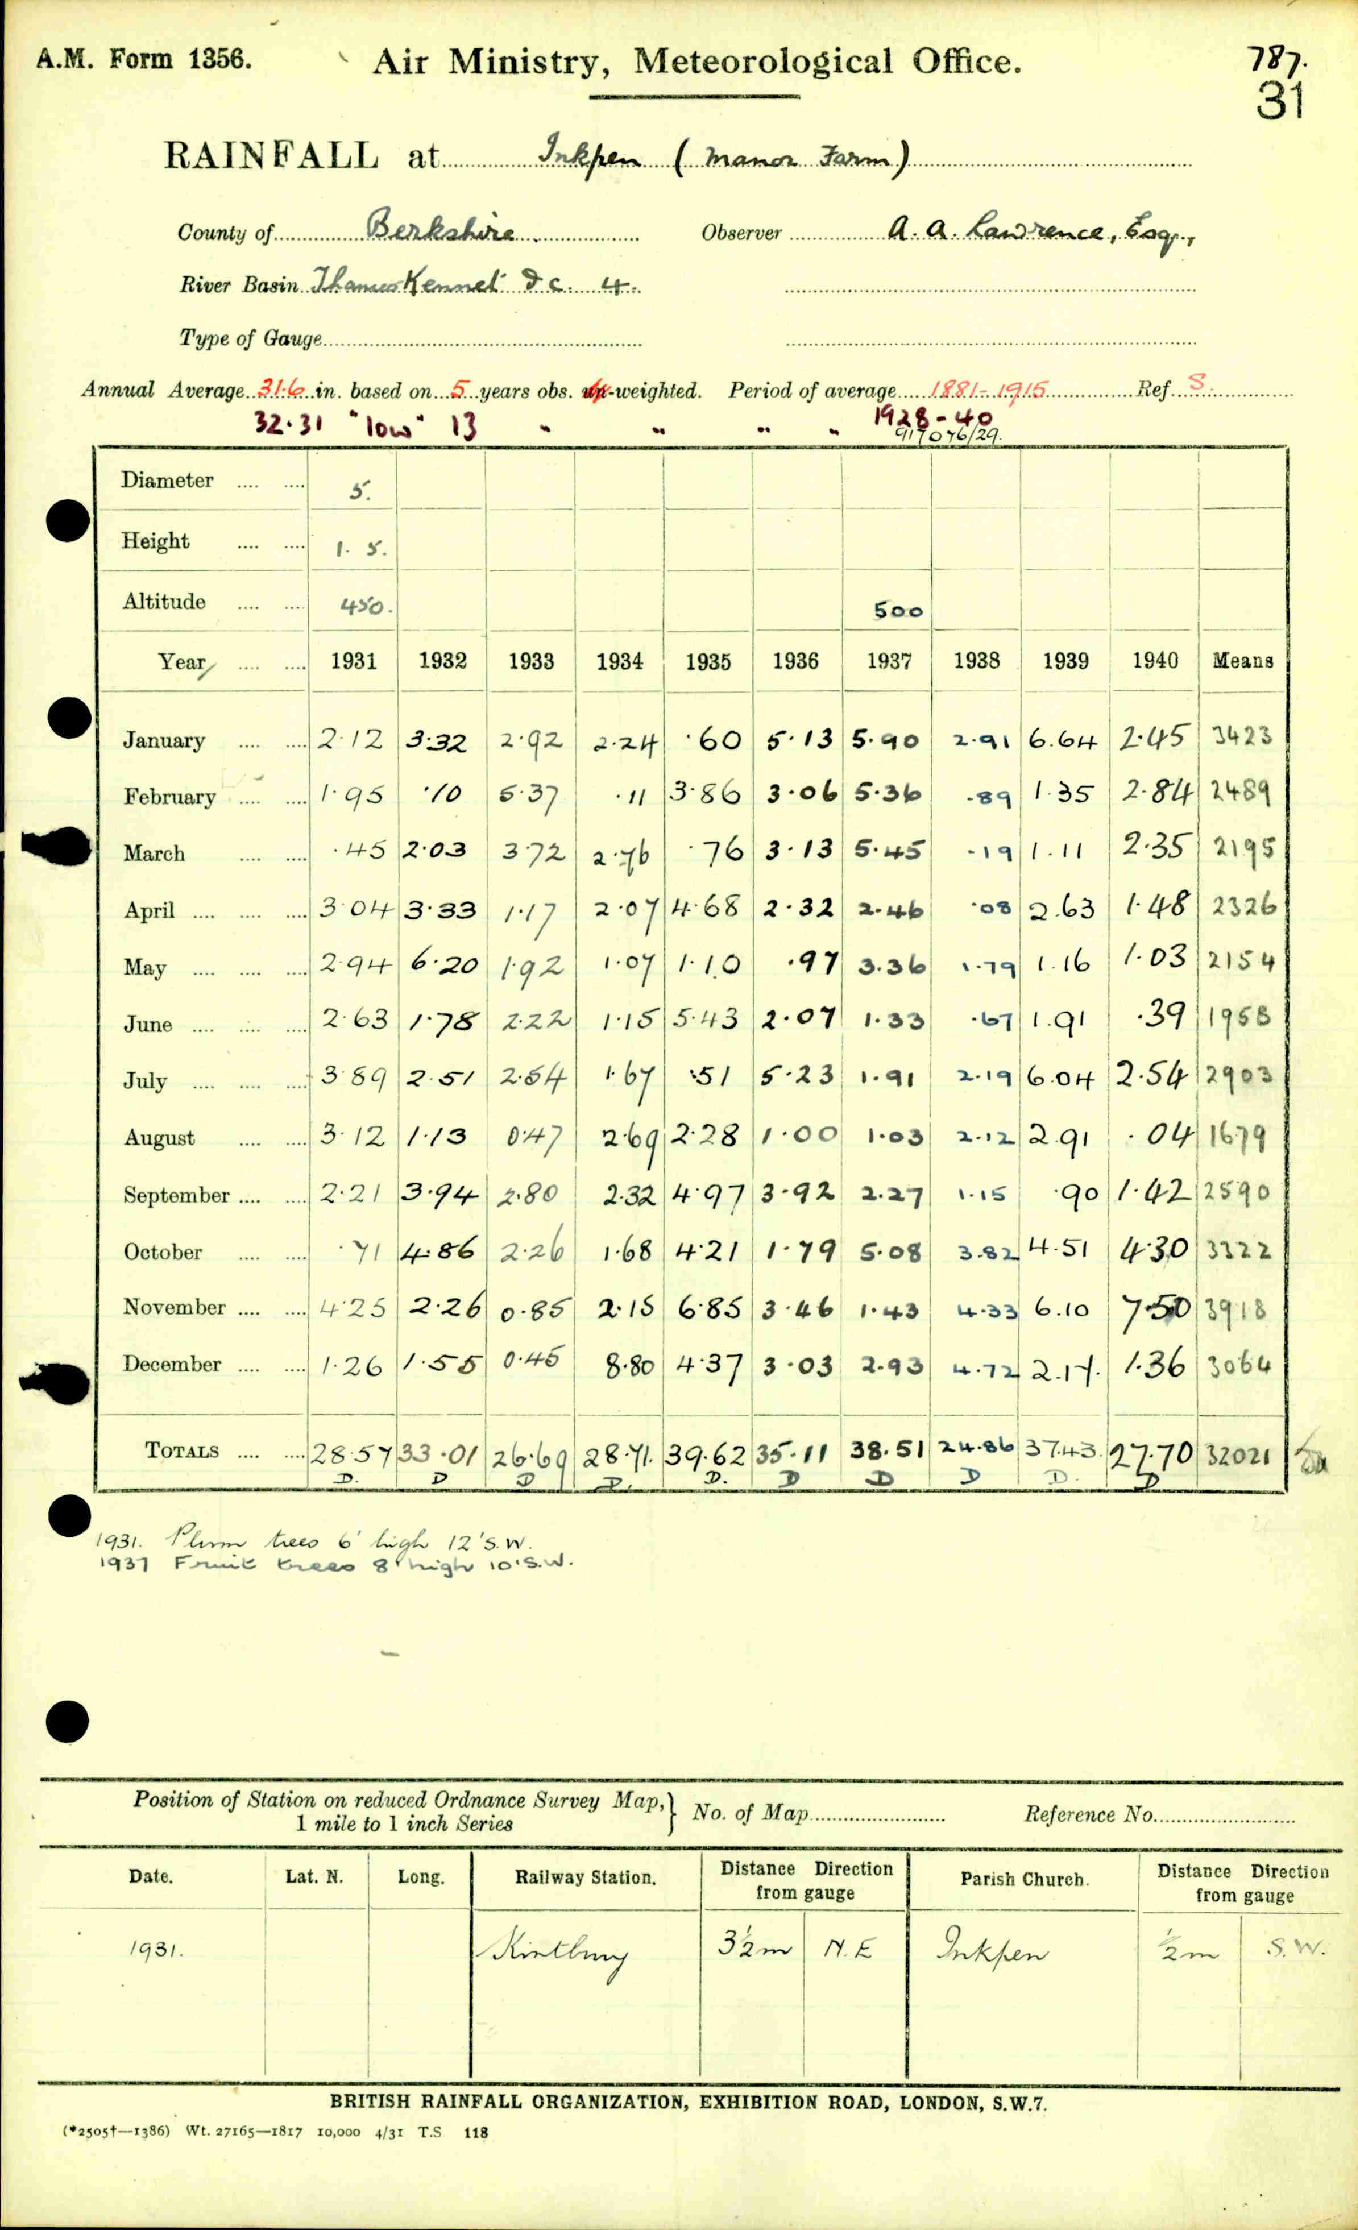 A.M. Form 1356. Air Ministry, Meteorological Office. 787.
31
RAINFALL at Inkpen (Manor Farm)
County of Berkshire. Observer A. A. Lawrence, Esq.,
River Basin Thames Kennet &c. 4.
Type of Gauge
Annual Average 31.6 in. based on 5 years obs. un-weighted. Period of average 1881-1915 Ref. S.
32.31 "low" 13 " " " " 1928-40
917076/29.
Diameter .... .... 5.
Height .... .... 1. 5.
Altitude .... .... 450. 500
Year .... .... 1931 1932 1933 1934 1935 1936 1937 1938 1939 1940 Means
January .... .... 2.12 3.32 2.92 2.24 .60 5.13 5.90 2.91 6.64 2.45 3423
February .... .... 1.95 .10 5.37 .11 3.86 3.06 5.36 .89 1.35 2.84 2489
March .... .... .45 2.03 3.72 2.76 .76 3.13 5.45 .19 1.11 2.35 2195
April .... .... .... 3.04 3.33 1.17 2.07 4.68 2.32 2.46 .08 2.63 1.48 2326
May .... .... .... 2.94 6.20 1.92 1.07 1.10 .97 3.36 1.79 1.16 1.03 2154
June .... .... .... 2.63 1.78 2.22 1.15 5.43 2.07 1.33 .67 1.91 .39 1958
July .... .... .... 3.89 2.51 2.54 1.67 .51 5.23 1.91 2.19 6.04 2.54 2903
August .... .... 3.12 1.13 0.47 2.69 2.28 1.00 1.03 2.12 2.91 .04 1679
September .... .... 2.21 3.94 2.80 2.32 4.97 3.92 2.27 1.15 .90 1.42 2590
October .... .... .71 4.86 2.26 1.68 4.21 1.79 5.08 3.82 4.51 4.30 3322
November .... .... 4.25 2.26 0.85 2.15 6.85 3.46 1.43 4.33 6.10 7.50 3918
December .... .... 1.26 1.55 0.45 8.80 4.37 3.03 2.93 4.72 2.17. 1.36 3064
TOTALS .... .... 28.57 33.01 26.69 28.71. 39.62 35.11 38.51 24.86 37.43. 27.70 32021
D. D D D. D. D D D D. D
1931. Plum trees 6' high 12' S.W.
1937 Fruit trees 8' high 10' S.W.
Position of Station on reduced Ordnance Survey Map, } No. of Map Reference No.
1 mile to 1 inch Series
Date. Lat. N. Long. Railway Station. Distance Direction from gauge Parish Church. Distance Direction from gauge
1931. Kintbury 3½m N.E Inkpen ½m S.W.
BRITISH RAINFALL ORGANIZATION, EXHIBITION ROAD, LONDON, S.W.7.
(*2505†—1386) Wt. 27165—1817 10,000 4/31 T.S 118